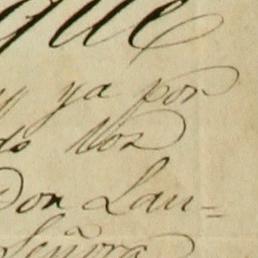 que
y ya por
do los
Don Lau=
Señora